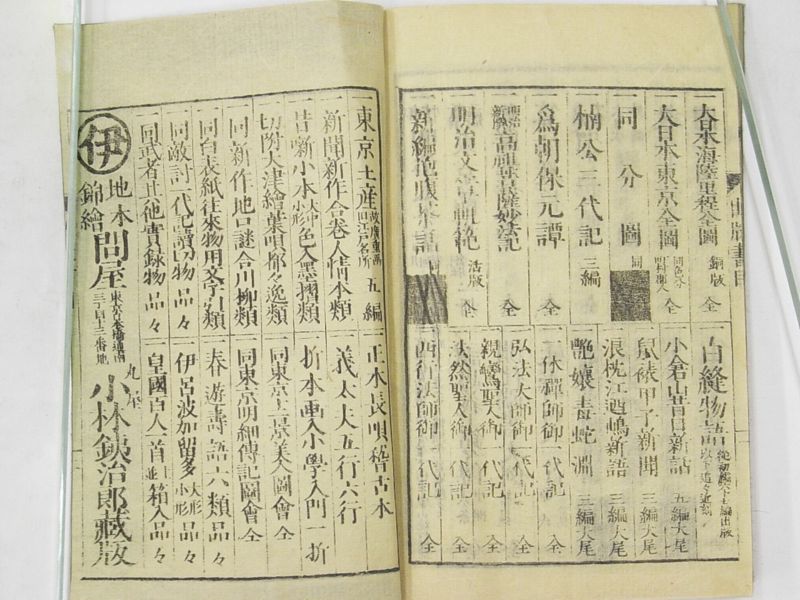 一大日本海陸里程全圖 銅版 全
一大日本東京全圖 全
一同 分圖 同
一楠公三代記 三編
一爲朝保元譚 全
一高祖菩薩妙法記 全
一明治文章軌範 活版 全
一古縫物語
一小倉山昔日新話 五編大尾
一鼠標甲子新聞 三編大尾
一浪枕江酉嶋新語 三編大尾
一艶孃毒蛇淵 三編大尾
一一休禪師御一代記 全
一弘法大師御一代記 全
一親鸞聖人御一代記 全
一法然聖人御一代記 全
一西行法師御一代記 全
一東京土産 五編
一新聞新作合卷人情本類
一昔噺小本 色入墨摺類
一切附大津繪葉唄都々逸類
一同新作地口謎合川柳類
一同台表紙往來物用文字引類
一同敵討一代記讀切物 品々
一同武者其他實録物 品々
一正本長唄稽古本
一義太夫五行六行
一折本画入小學入門一折
一同東京上景美人圖會 全
一同東京明細傳記圖會 全
一春遊壽語六類品々
一伊呂波加留多 大形 小形 品々
一皇國百人一首 箱入品々
伊
地本
錦繪
問屋
丸屋
小林鉄治郎藏版